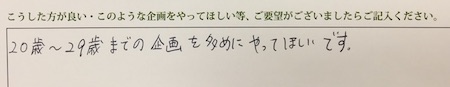 こうした方が良い・このような企画をやってほしい等、ご要望がございましたらご記入ください。
20歳～29歳までの企画を多めにやってほしいです。